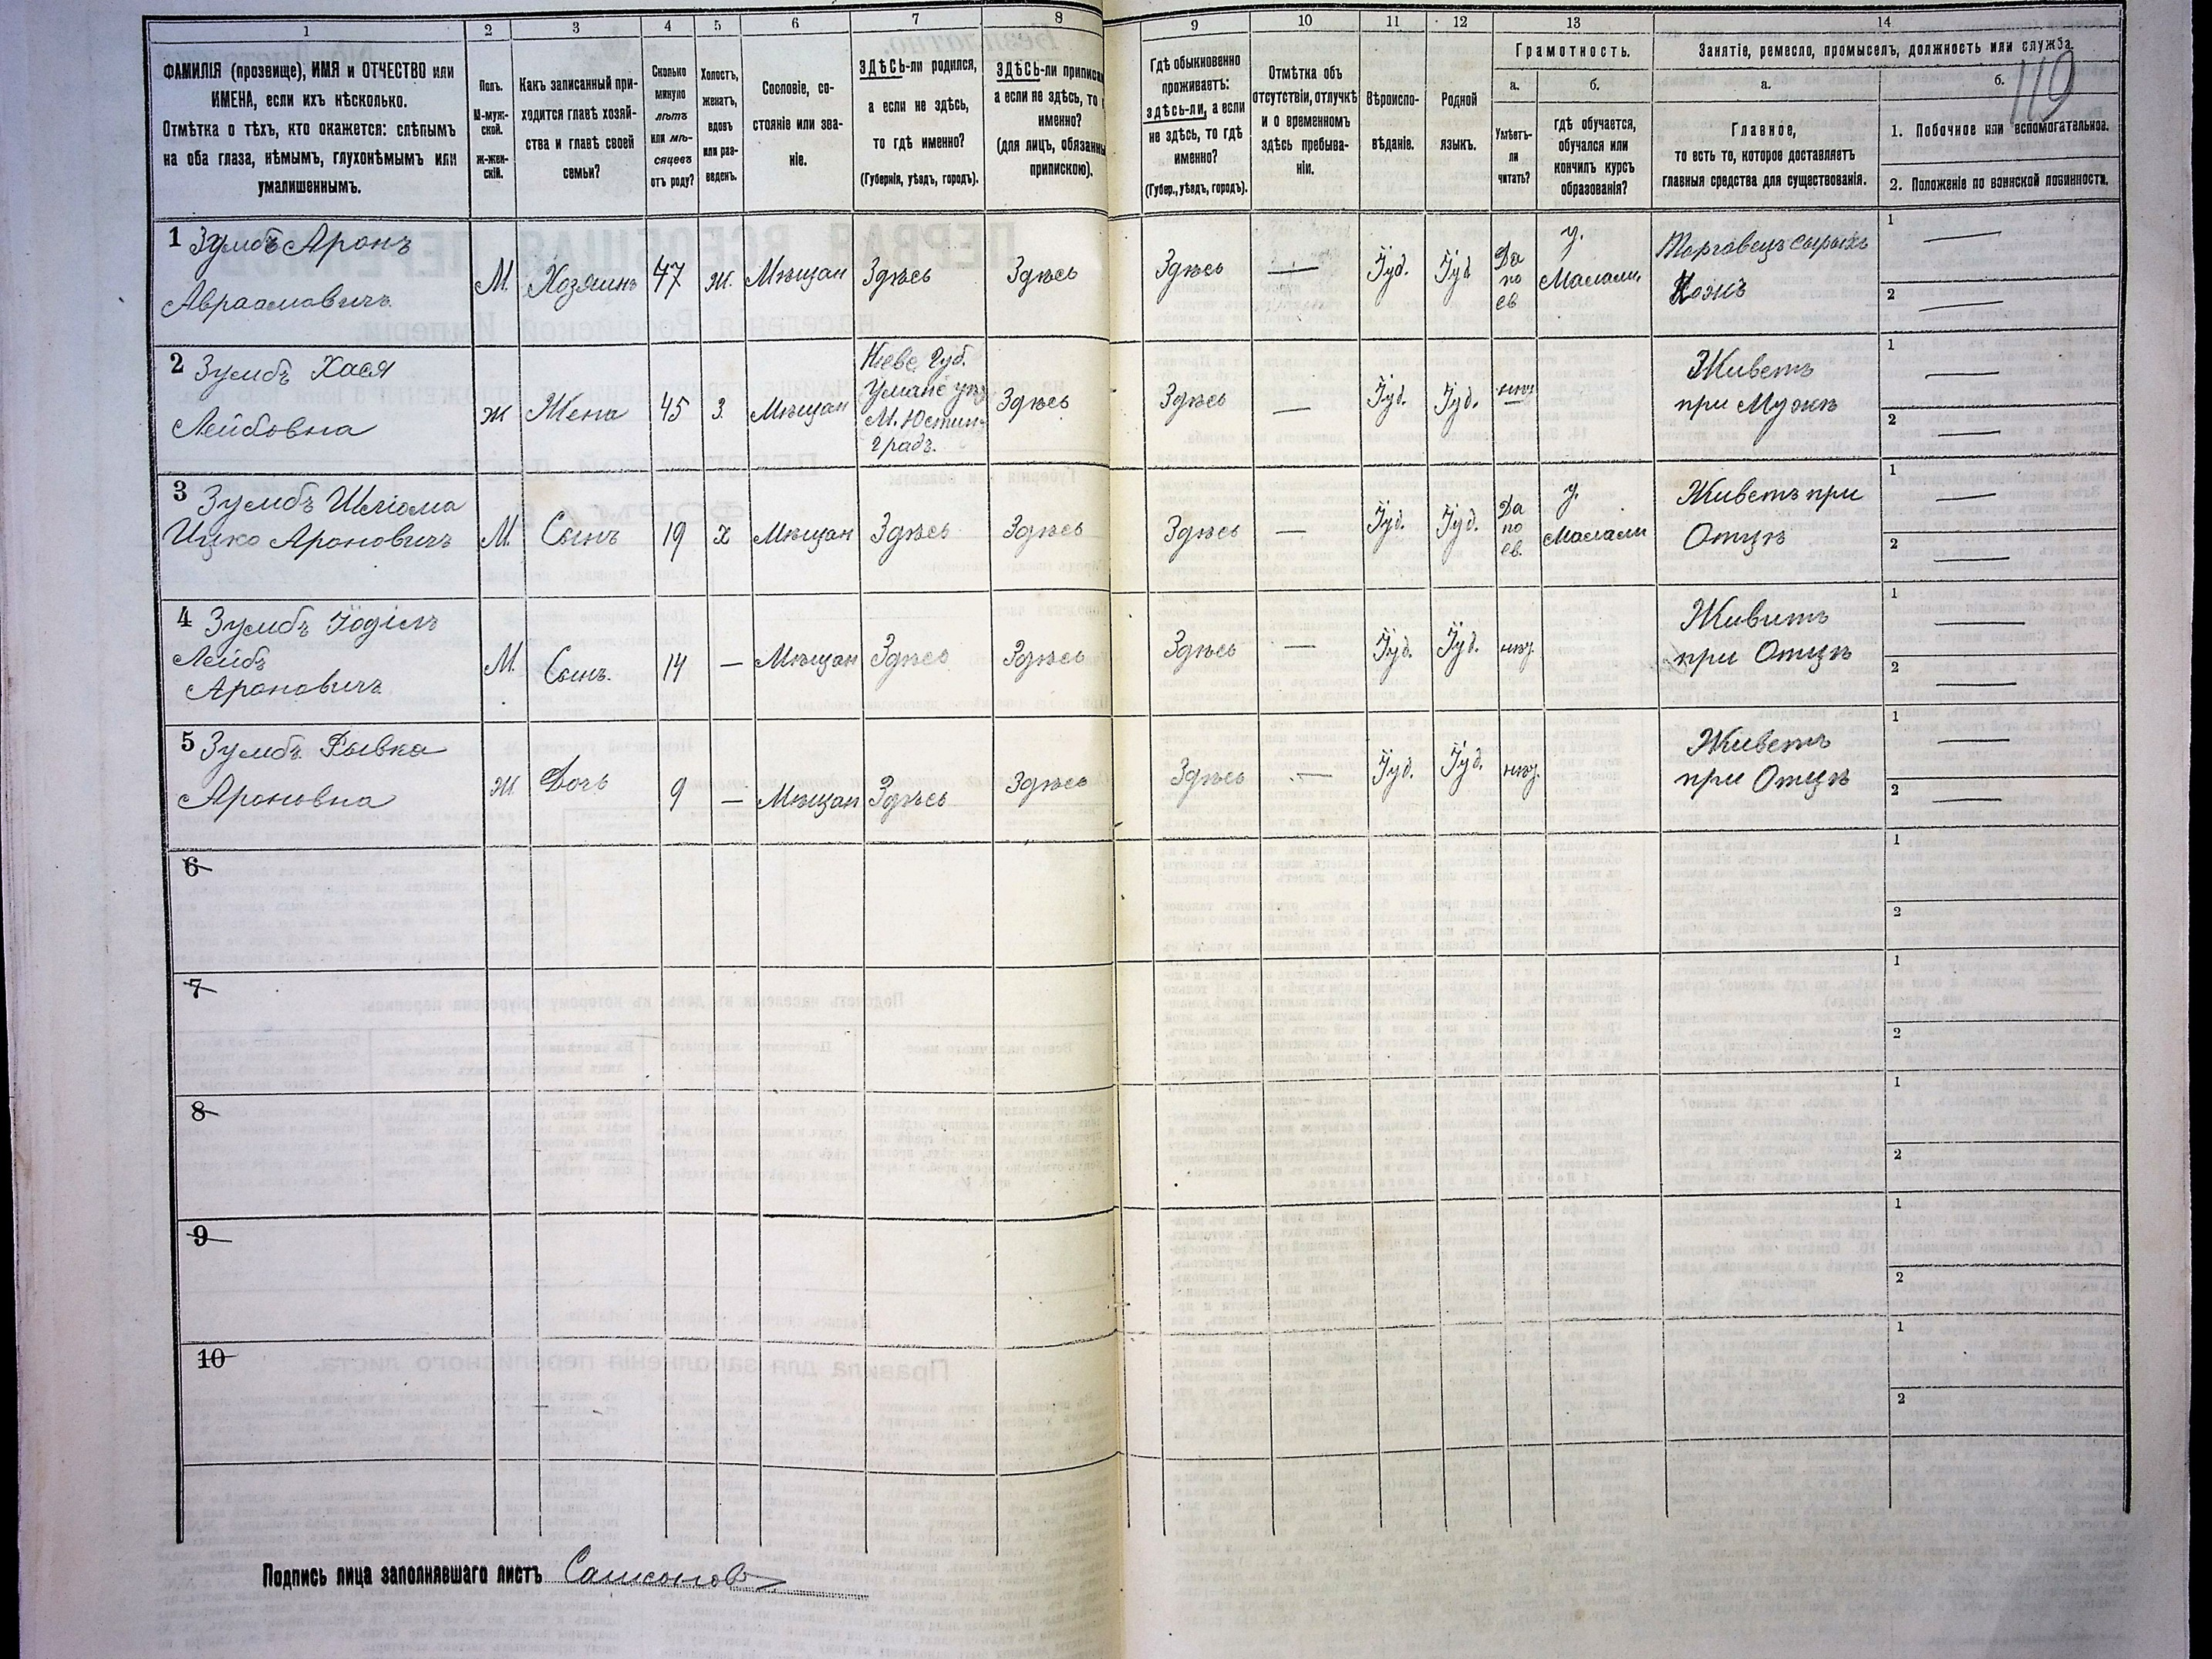 1
2
3
4
5
6
7
8
9
10
11
12
13
14
ФАМИЛІЯ (прозвище), ИМЯ и ОТЧЕСТВО или
ИМЕНА, если ихъ нѣсколько.
Отмѣтка о тѣхъ, кто окажется: слѣпымъ
на оба глаза, нѣмымъ, глухонѣмымъ или
умалишеннымъ.
Полъ.
М-муж-
ской.
Ж-жен-
скій.
Какъ записанный при-
ходится главѣ хозяй-
ства и главѣ своей
семьи?
Сколько
минуло
лѣтъ
или мѣ-
сяцевъ
отъ роду?
Холостъ,
женатъ,
вдовъ
или раз-
веденъ.
Сословіе, со-
стояніе или зва-
ніе.
ЗДѢСЬ-ли родился,
а если не здѣсь,
то гдѣ именно?
(Губернія, уѣздъ, городъ).
ЗДѢСЬ-ли приписа
а если не здѣсь, то
именно?
(для лицъ, обязанны
припискою).
Гдѣ обыкновенно
проживаетъ:
здѣсь-ли, а если
не здѣсь, то гдѣ
именно?
(Губер., уѣздъ, городъ).
Отмѣтка объ
отсутствіи, отлучкѣ
и о временномъ
здѣсь пребыва-
ніи.
Вѣроиспо-
вѣданіе.
Родной
языкъ.
Грамотность.
а.
б.
Умѣетъ-
ли
читать?
Гдѣ обучается,
обучался или
кончилъ курсъ
образованія?
Занятіе, ремесло, промыселъ, должность или служба.
а.
б.
119
Главное,
то есть то, которое доставляетъ
главныя средства для существованія.
1. Побочное или вспомогательное.
2. Положеніе по воинской повинности.
1 Зумбъ Аронъ
Авраамовичъ
М.
Хозяинъ
47
Ж.
Мѣщан
Здѣсь
Здѣсь
Здѣсь
—
Іуд.
Іуд
Да
по
ев
у.
Торговецъ сырыхъ
Кожъ
1 —
2 —
2 Зумбъ Хася
Лейбовна
Ж
Жена
45
З.
Мѣщан
Кіевс. Губ.
Уманс уѣз
М. Юстин-
градъ.
Здѣсь
Здѣсь
—
Іуд.
Іуд.
нѣт
Живетъ
при Мужѣ
1 —
2 —
3 Зумбъ Шліома
Ицко Ароновичъ
М.
Сынъ
19
Х
Мѣщан
Здѣсь
Здѣсь
Здѣсь
—
Іуд.
Іуд.
Да
по
ев.
у.
Живетъ при
Отцѣ
1 —
2 —
4 Зумбъ Іодіелъ
Лейбъ
Ароновичъ
М.
Сынъ.
14
—
Мѣщан
Здѣсь
Здѣсь
Здѣсь
—
Іуд.
Іуд.
нѣт.
Живитъ
при Отцѣ
1 —
2 —
5 Зумбъ Рывка
Ароновна
Ж
Дочь
9
—
Мѣщан
Здѣсь
Здѣсь
Здѣсь
—
Іуд.
Іуд.
нѣт.
Живетъ
при Отцѣ
1 —
2 —
6
1
2
7
1
2
8
1
2
9
1
2
10
1
2
Подпись лица заполнявшаго листъ Самсоновъ